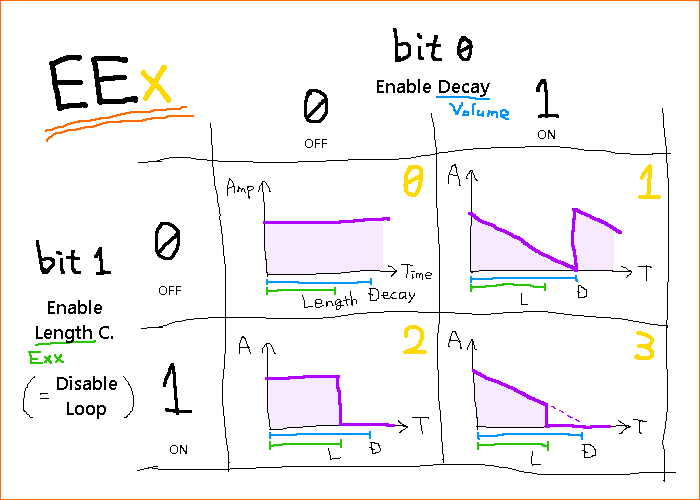 EEx
bit 0
Enable Decay
Volume
0
OFF
1
ON
bit 1
Enable
Length C.
Exx
(= Disable
Loop)
0
OFF
1
ON
0
Amp
Time
Length Decay
1
A
T
L D
2
A
T
L D
3
A
T
L D